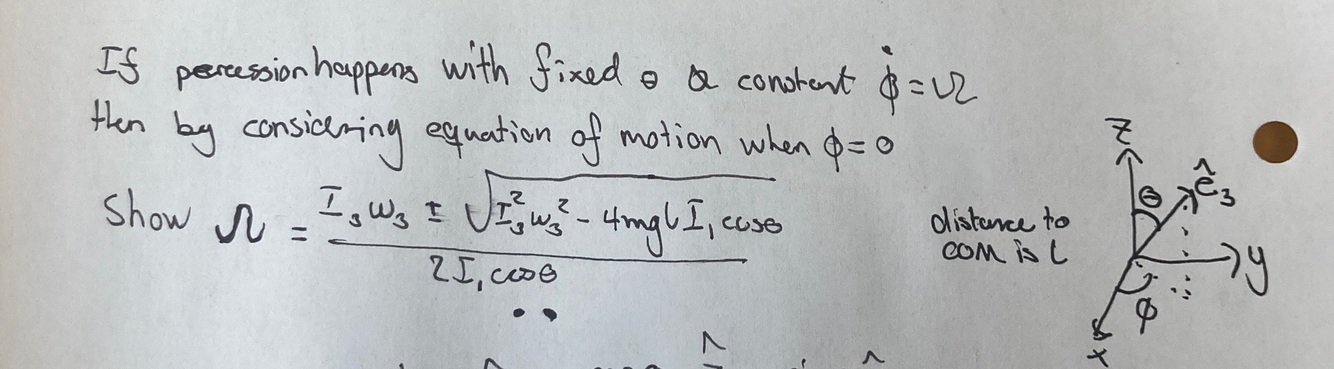 If percession happens with fixed θ & constant ϕ̇ = Ω
then by considering equation of motion when ϕ = 0
Show Ω = (I₃ω₃ ± √(I₃²ω₃² - 4mglI₁cosθ)) / (2I₁cosθ)
distance to
COM is l
z
ê₃
θ
y
ϕ
x